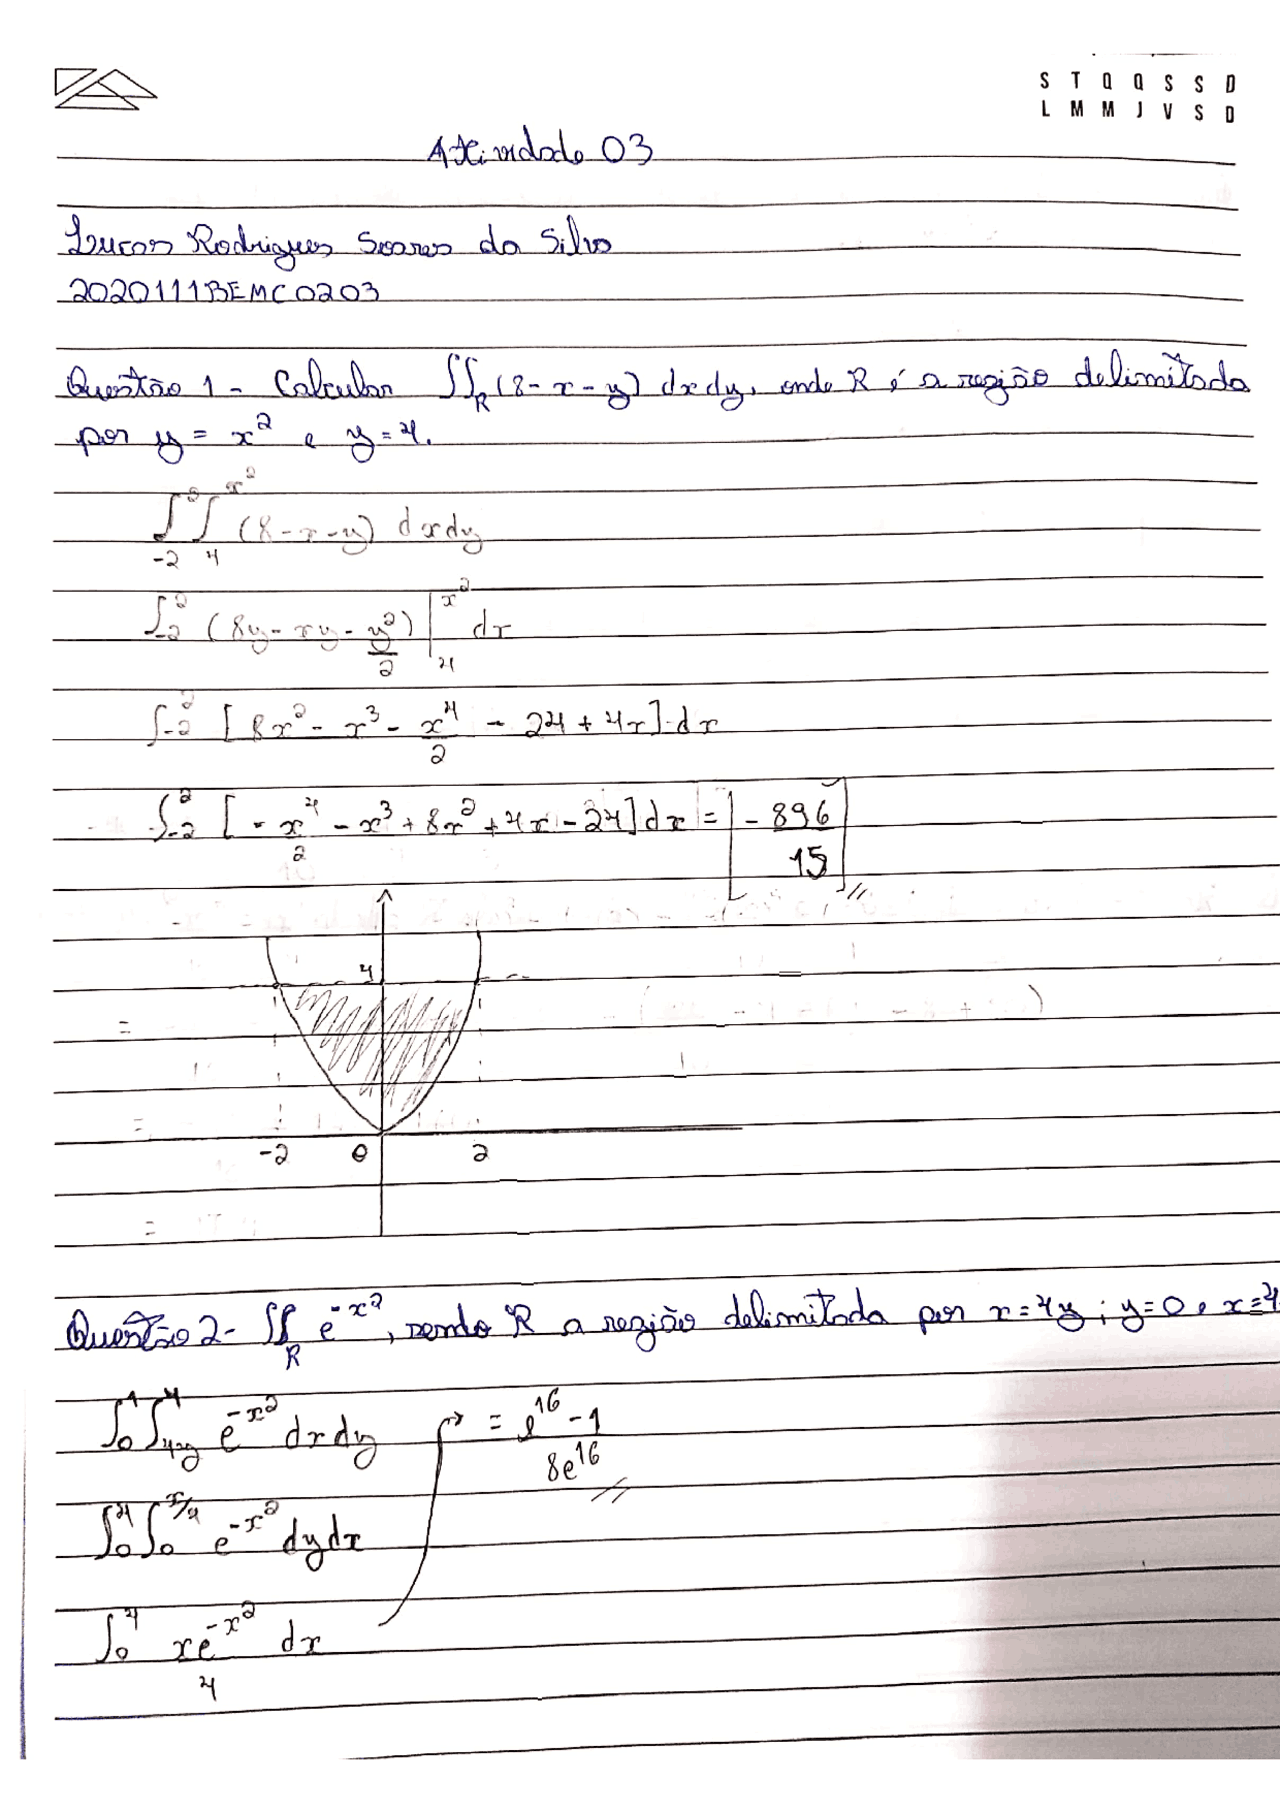 S T Q Q S S D
L M M J V S D
Atividade 03
Lucas Rodrigues Soares da Silva
2020111BEMC0203
Questão 1 - Calcular ∫∫_R (8-x-y) dxdy, onde R é a região delimitada
por y = x² e y = 4.
∫_{-2}^{2} ∫_{4}^{x²} (8-x-y) dxdy
∫_{-2}^{2} (8y - xy - y²/2) |_{4}^{x²} dx
∫_{-2}^{2} [8x² - x³ - x⁴/2 - 24 + 4x] dx
∫_{-2}^{2} [-x⁴/2 - x³ + 8x² + 4x - 24] dx = -896/15
4
-2 0 2
Questão 2 - ∫∫_R e^{-x²}, sendo R a região delimitada por x = 4y ; y = 0 e x = 4
∫_{0}^{1} ∫_{4y}^{4} e^{-x²} dxdy → = e^{16} - 1 / 8e^{16}
∫_{0}^{4} ∫_{0}^{x/4} e^{-x²} dydx
∫_{0}^{4} xe^{-x²}/4 dx